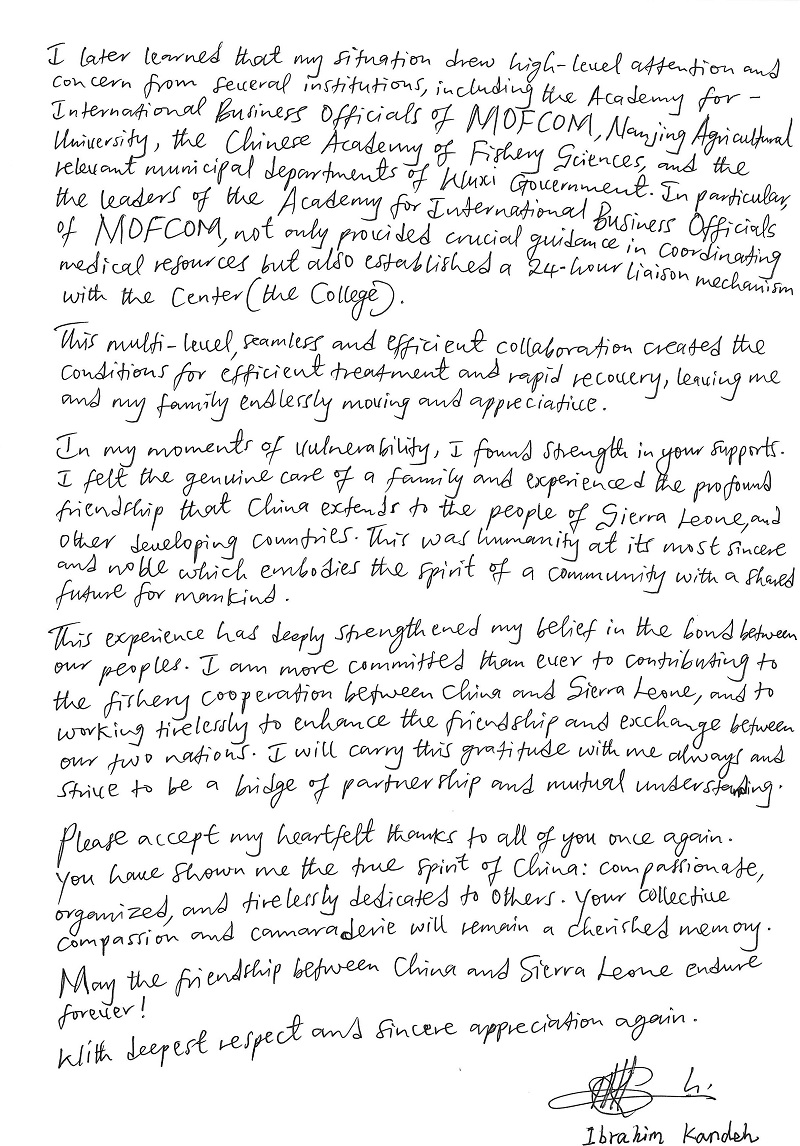 I later learned that my situation drew high-level attention and
concern from several institutions, including the Academy for -
International Business Officials of MOFCOM, Nanjing Agricultural
University, the Chinese Academy of Fishery Sciences, and the
relevant municipal departments of Wuxi Government. In particular,
the leaders of the Academy for International Business Officials
of MOFCOM, not only provided crucial guidance in coordinating
medical resources but also established a 24-hour liaison mechanism
with the Center (the College).
This multi-level, seamless and efficient collaboration created the
conditions for efficient treatment and rapid recovery, leaving me
and my family endlessly moving and appreciative.
In my moments of vulnerability, I found strength in your supports.
I felt the genuine care of a family and experienced the profound
friendship that China extends to the people of Sierra Leone, and
other developing countries. This was humanity at its most sincere
and noble which embodies the spirit of a community with a shared
future for mankind.
This experience has deeply strengthened my belief in the bond between
our peoples. I am more committed than ever to contributing to
the fishery cooperation between China and Sierra Leone, and to
working tirelessly to enhance the friendship and exchange between
our two nations. I will carry this gratitude with me always and
strive to be a bridge of partnership and mutual understanding.
Please accept my heartfelt thanks to all of you once again.
You have shown me the true spirit of China: compassionate,
organized, and tirelessly dedicated to others. Your collective
compassion and camaraderie will remain a cherished memory.
May the friendship between China and Sierra Leone endure
forever!
With deepest respect and sincere appreciation again.
Ibrahim Kandeh